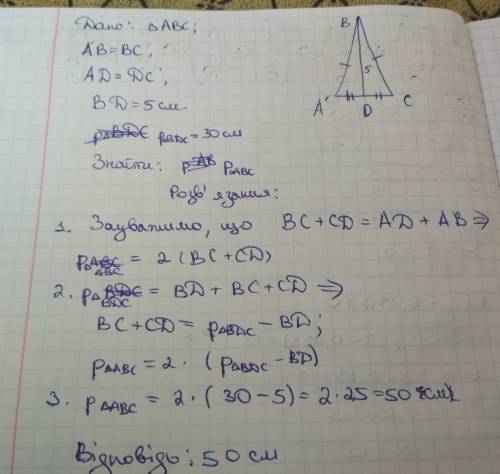 Дано: △ABC;
AB=BC;
AD=DC;
BD=5см.
P△BDC=30см
Знайти: P△ABC
Розв'язання:
B
5
A
D
C
1. Зауважимо, що BC+CD=AD+AB⇒
P△ABC = 2(BC+CD)
2. P△BDC = BD+BC+CD ⇒
BC+CD= P△BDC-BD;
P△ABC=2·(P△BDC-BD)
3. P△ABC = 2·(30-5)=2·25=50(см)
Відповідь: 50 см